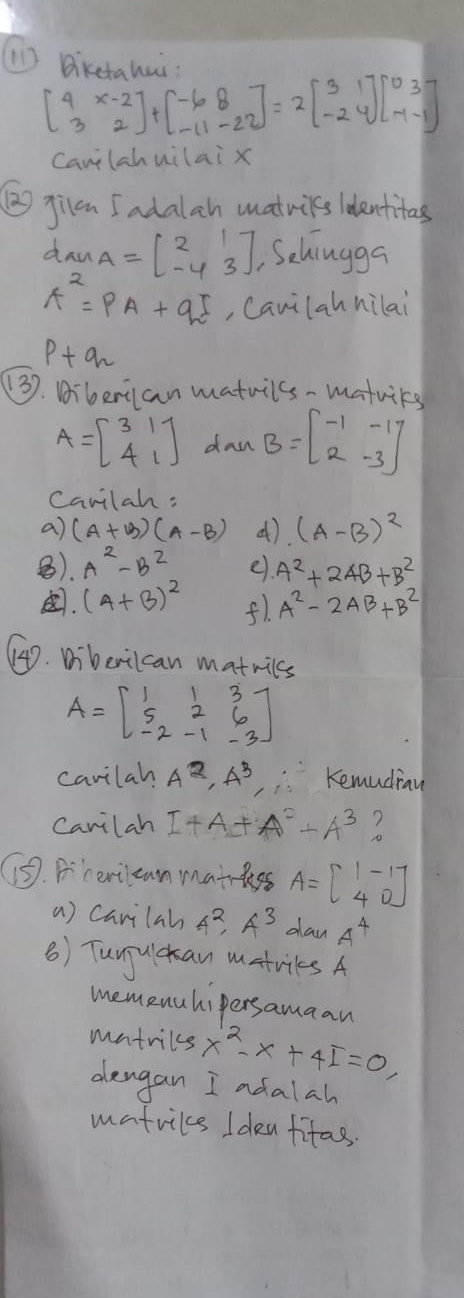 (11) Diketahui:
[4 x-2
3 2] + [-6 8
-11 -22] = 2 [3 1
-2 4] [0 3
-1 -1]
Carilah nilai x
(12) Jika I adalah matriks Identitas
dan A = [2 1
-4 3], Sehingga
A² = PA + qI, Carilah nilai
P + q
(13). Diberikan matriks - matriks
A = [3 1
4 1] dan B = [-1 -1
2 -3]
Carilah :
a) (A+B)(A-B) d). (A-B)²
b). A² - B² e). A² + 2AB + B²
c). (A+B)² f). A² - 2AB + B²
(14). Diberikan matriks
A = [1 1 3
5 2 6
-2 -1 -3]
Carilah A², A³, Kemudian
Carilah I + A + A² + A³ ?
(15). Diberikan matriks A = [1 -1
4 0]
a) Carilah A², A³ dan A⁴
b) Tunjukkan matriks A
memenuhi persamaan
matriks x² - x + 4I = 0,
dengan I adalah
matriks Identitas.